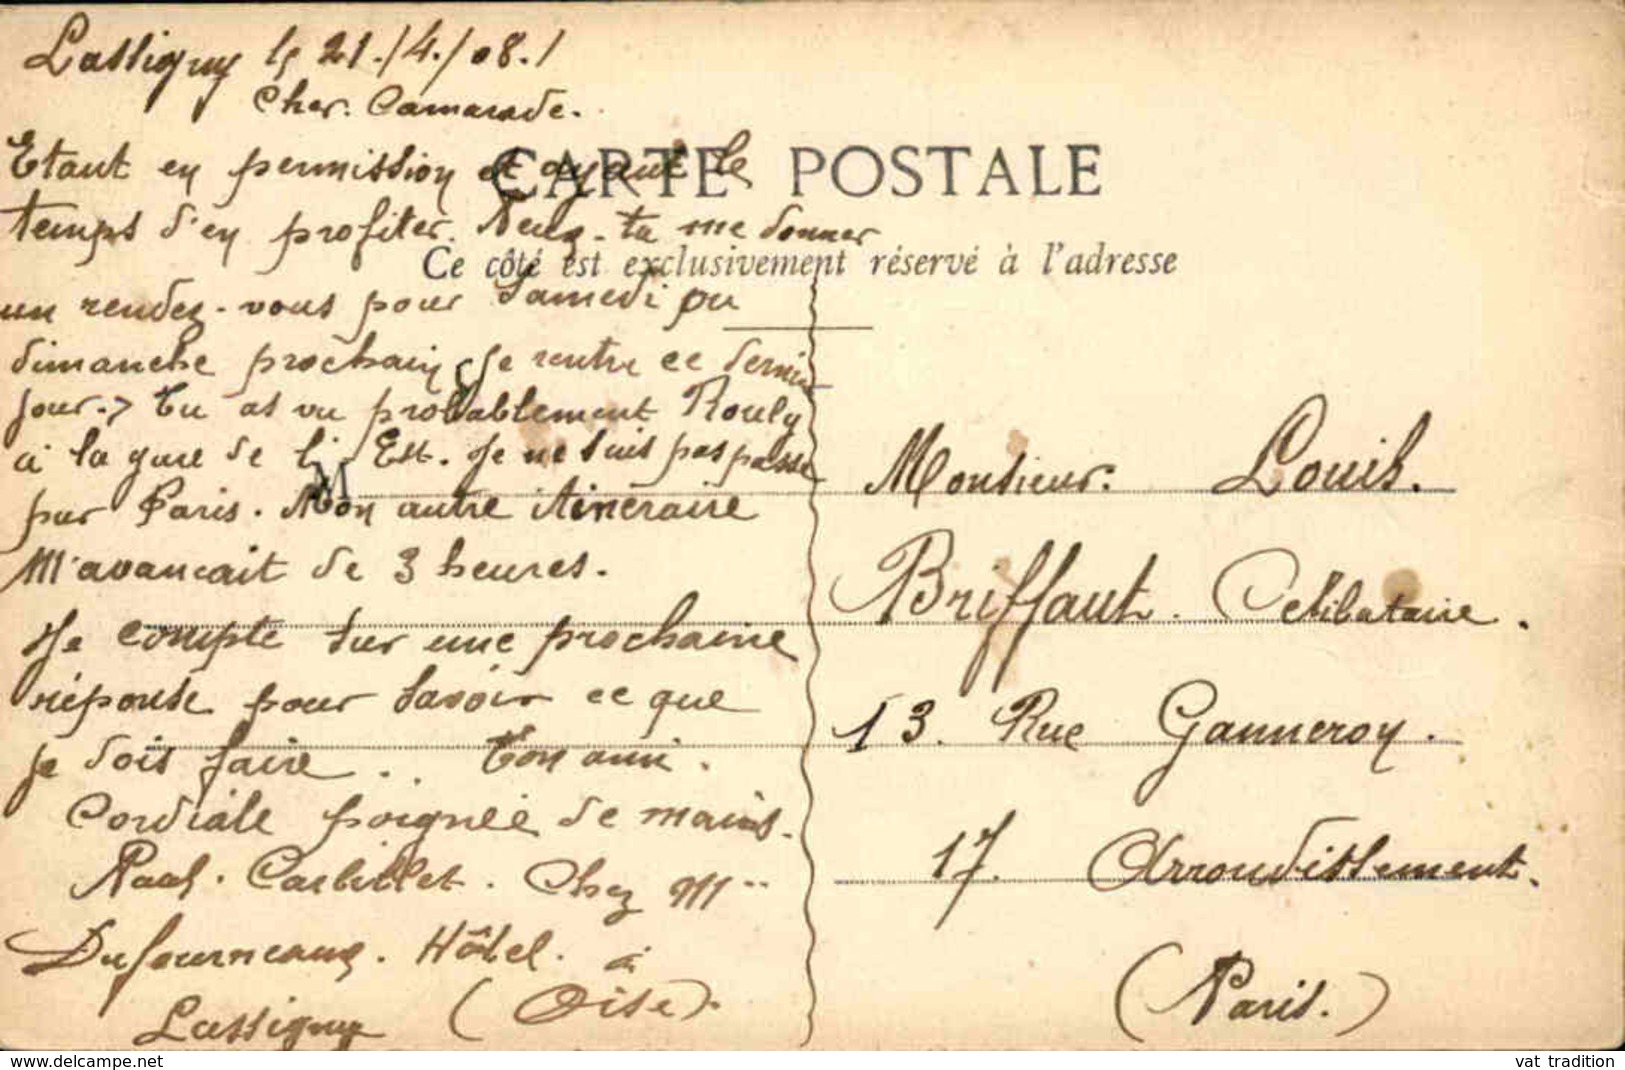 Lassigny le 21./4./08./
Cher. Camarade.
CARTE POSTALE
Etant en permission et ayant le
temps d'en profiter. Veux-tu me donner
Ce côté est exclusivement réservé à l'adresse
un rendez-vous pour Samedi ou
dimanche prochain (Je rentre ce dernier
jour.) Tu as vu probablement Rouly
à la gare de l'Est. Je ne suis pas passé
M
par Paris. Mon autre itinéraire
M'avançait de 3 heures.
Je compte sur une prochaine
réponse pour savoir ce que
je dois faire... Ton ami.
Cordiale poignée de mains.
Paul. Carbillet. Chez Mr
Dufourneaux. Hôtel. à
Lassigny (Oise).
Monsieur. Louis.
Briffaut. Celibataire.
13. Rue Ganneroy.
17. Arrondissement.
(Paris.)
vat tradition
delcampe.net